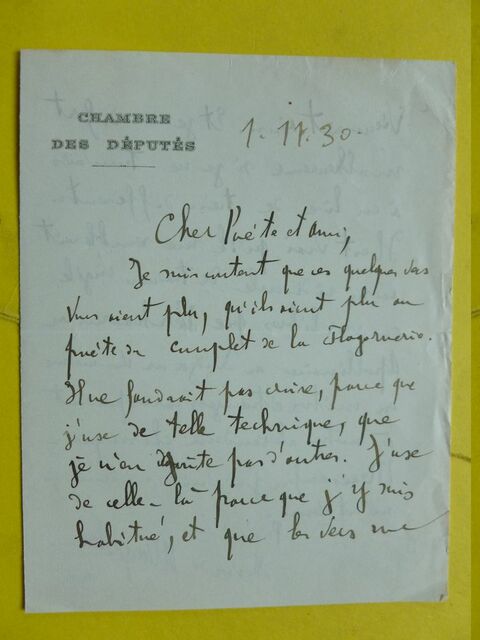 CHAMBRE
DES DÉPUTÉS
1. 11. 30.
Cher Poéte et ami,
Je suis content que ces quelques vers
vous aient plu, qu'ils aient plu au
poéte du couplet de la Flagornerie.
Il ne faudrait pas croire, parce que
j'use de telle technique, que
je n'en goûte pas d'autres. J'use
de celle-là parce que j'y suis
habitué, et que les vers me